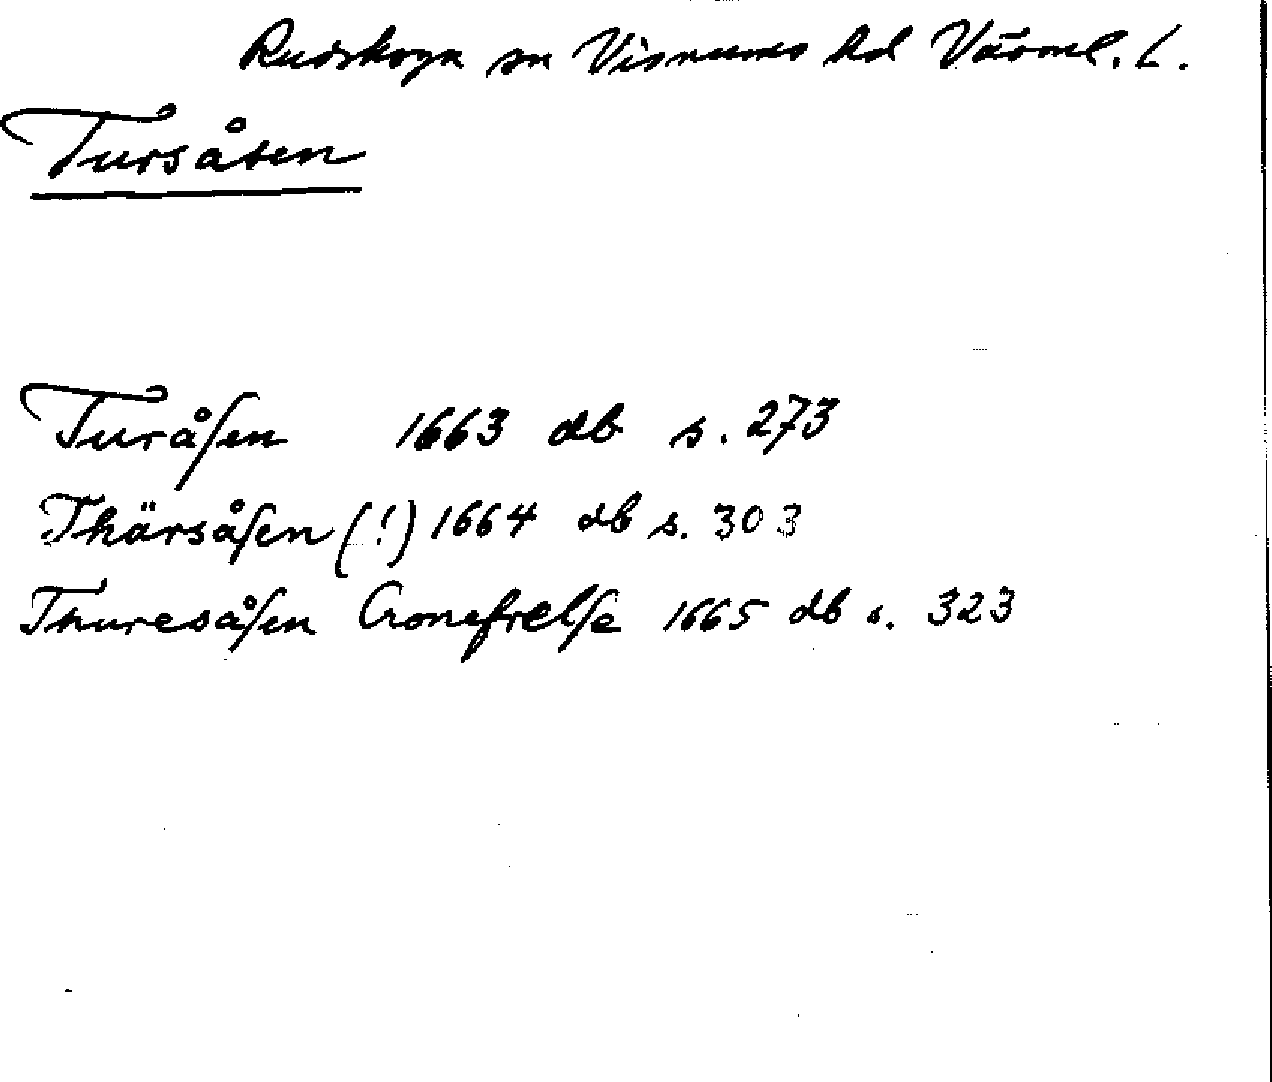 Rudskoga sn Visnums hd Värml. L.
Tursåsen
Turåſen 1663 db s. 273
Thärsåſen (!) 1664 db s. 303
Thuresåſen Cronefrelſe 1665 db s. 323